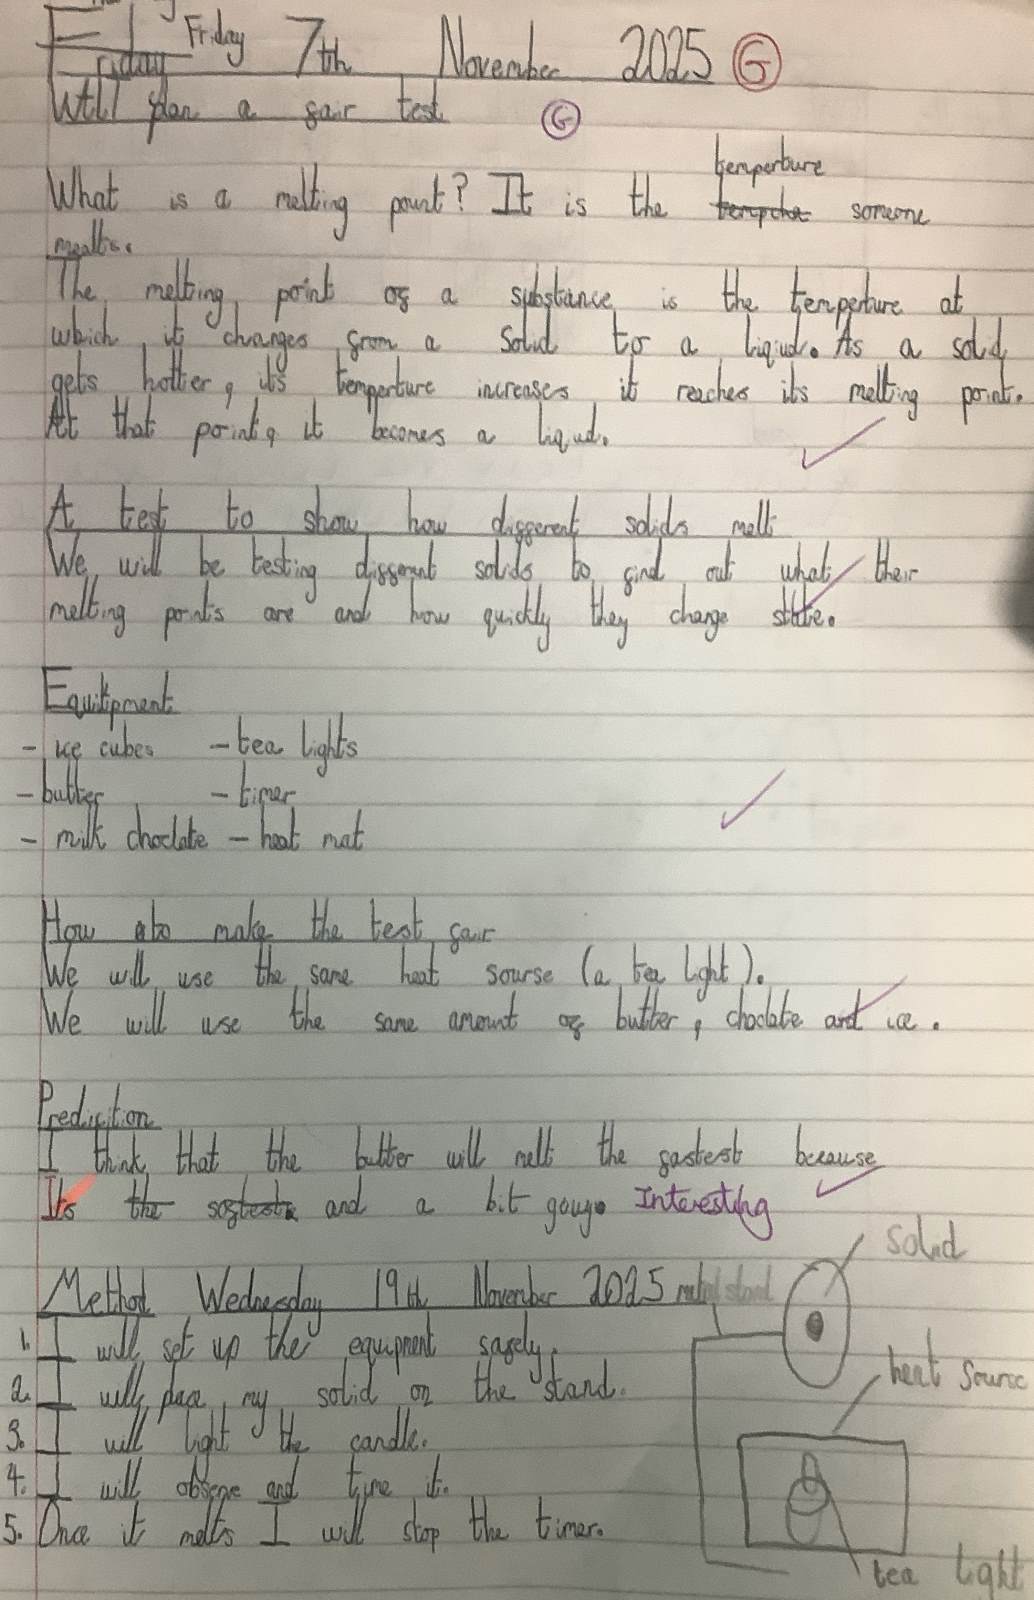 Friday
Friday 7th November 2025 G
WtLI plan a fair test G
temperture
What is a melting point? It is the tempcha someone
mealts.
The melting point of a substance is the temperture at
which it changes from a solid to a liqiud. As a solid
gets hotter, it's temperture increases it reaches its melting point.
At that point, it becomes a liqiud.
A test to show how different solids melt
We will be testing different solids to find out what their
melting points are and how quickly they change state.
Equitipment
- ice cubes - tea lights
- butter - timer
- milk choclate - heat mat
How to make the test fair
We will use the same heat sourse (a tea light).
We will use the same amount of butter, choclate and ice.
Predicition
I think that the butter will melt the fastest because
Its the softest and a bit gouy. Interesting
solid
Method Wednesday 19th November 2025 metal stand
1. I will set up the equipment safely.
heat source
2. I will place my solid on the stand.
3. I will light the candle.
4. I will observe and time it.
5. Once it melts I will stop the timer.
tea light